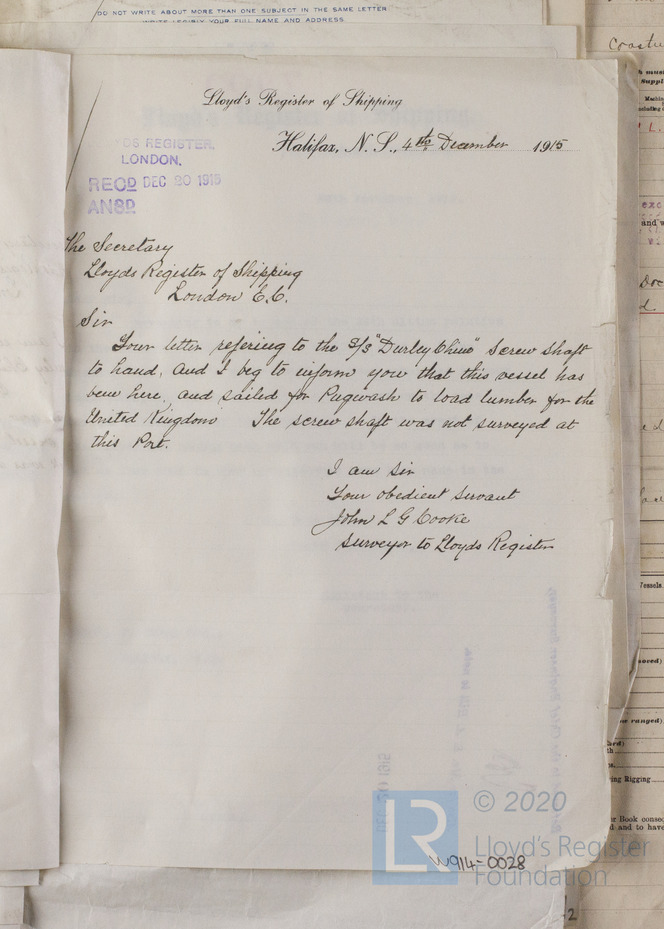 DO NOT WRITE ABOUT MORE THAN ONE SUBJECT IN THE SAME LETTER
WRITE LEGIBLY YOUR FULL NAME AND ADDRESS.
Lloyd's Register of Shipping
Halifax, N. S., 4th December 1915
OS REGISTER,
LONDON.
RECD DEC 20 1915
ANSD
The Secretary
Lloyds Register of Shipping
London E.C.
Sir
Your letter refering to the S/S "Durley Chine" Screw Shaft
to hand, and I beg to inform you that this vessel has
been here, and sailed for Pugwash to load lumber for the
United Kingdom The screw shaft was not surveyed at
this Port.
I am Sir
Your obedient servant
John L G Cooke
Surveyor to Lloyds Register
DEC 20 1915
W914-0028
© 2020
Lloyd's Register
Foundation
LR